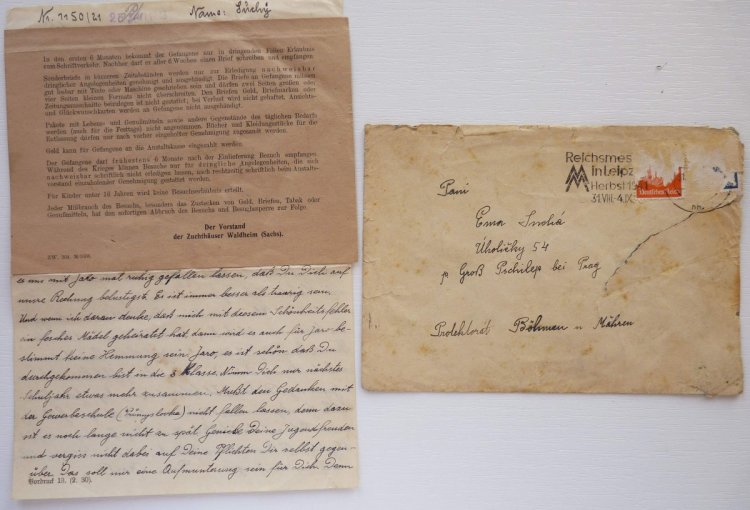 Nr. 1150/21 Name: Suchý
In den ersten 6 Monaten bekommt der Gefangene nur in dringenden Fällen Erlaubnis
zum Schriftverkehr. Nachher darf er aller 6 Wochen einen Brief schreiben und empfangen
Sonderbriefe in kürzeren Zeitabständen werden nur zur Erledigung nachweisbar
dringlicher Angelegenheiten genehmigt und ausgehändigt. Die Briefe an Gefangene müssen
gut lesbar mit Tinte oder Maschine geschrieben sein und dürfen zwei Seiten großen oder
vier Seiten kleinen Formats nicht überschreiten. Den Briefen Geld, Briefmarken oder
Zeitungsausschnitte beizulegen ist nicht gestattet; bei Verlust wird nicht gehaftet. Ansichts-
und Glückwunschkarten werden an Gefangene nicht ausgehändigt.
Pakete mit Lebens- und Genußmitteln sowie andere Gegenstände des täglichen Bedarfs
werden (auch für die Festtage) nicht angenommen. Bücher und Kleidungsstücke für die
Entlassung dürfen nur nach vorher eingeholter Genehmigung zugesandt werden.
Geld kann für Gefangene an die Anstaltskasse eingezahlt werden
Der Gefangene darf frühestens 6 Monate nach der Einlieferung Besuch empfangen.
Während des Krieges können Besuche nur für dringliche Angelegenheiten, die sich
nachweisbar schriftlich nicht erledigen lassen, nach rechtzeitig schriftlich beim Anstalts-
vorstand einzuholender Genehmigung gestattet werden.
Für Kinder unter 16 Jahren wird keine Besuchserlaubnis erteilt.
Jeder Mißbrauch des Besuchs, besonders das Zustecken von Geld, Briefen, Tabak oder
Genußmitteln, hat den sofortigen Abbruch des Besuchs und Besuchssperre zur Folge.
Der Vorstand
der Zuchthäuser Waldheim (Sachs).
es uns mit Jaro mal ruhig gefallen lassen, daß Du Dich auf
unsre Rechnung belustigst. Es ist immer besser als traurig sein.
Und wenn ich daran denke, daß mich mit diesem Schönheitsfehler
ein fesches Mädel geheiratet hat dann wird es auch für Jaro be-
stimmt keine Hemmung sein. Jaro, es ist schön daß Du
durchgekommen bist in die 3 Klasse. Nimm Dich nur nächstes
Schuljahr etwas mehr zusammen. Mußt den Gedanken mit
der Gewerbeschule (Průmyslovka) nicht fallen lassen, denn dazu
ist es noch lange nicht zu spät. Genieße Deine Jugendfreuden
und vergiss nicht dabei auf Deine Pflichten Dir selbst gegen-
über. Das soll nur eine Aufmunterung sein für Dich. Denn
Vordruck 13. (2. 30).
Reichsmes
in Leipz
Herbst 19
31.VIII.-4.IX.
Deutsches Reich
Paní
Ema Suchá
Úholičky 54
p Groß Pschilep bei Prag
Protektorát Böhmen u Mähren